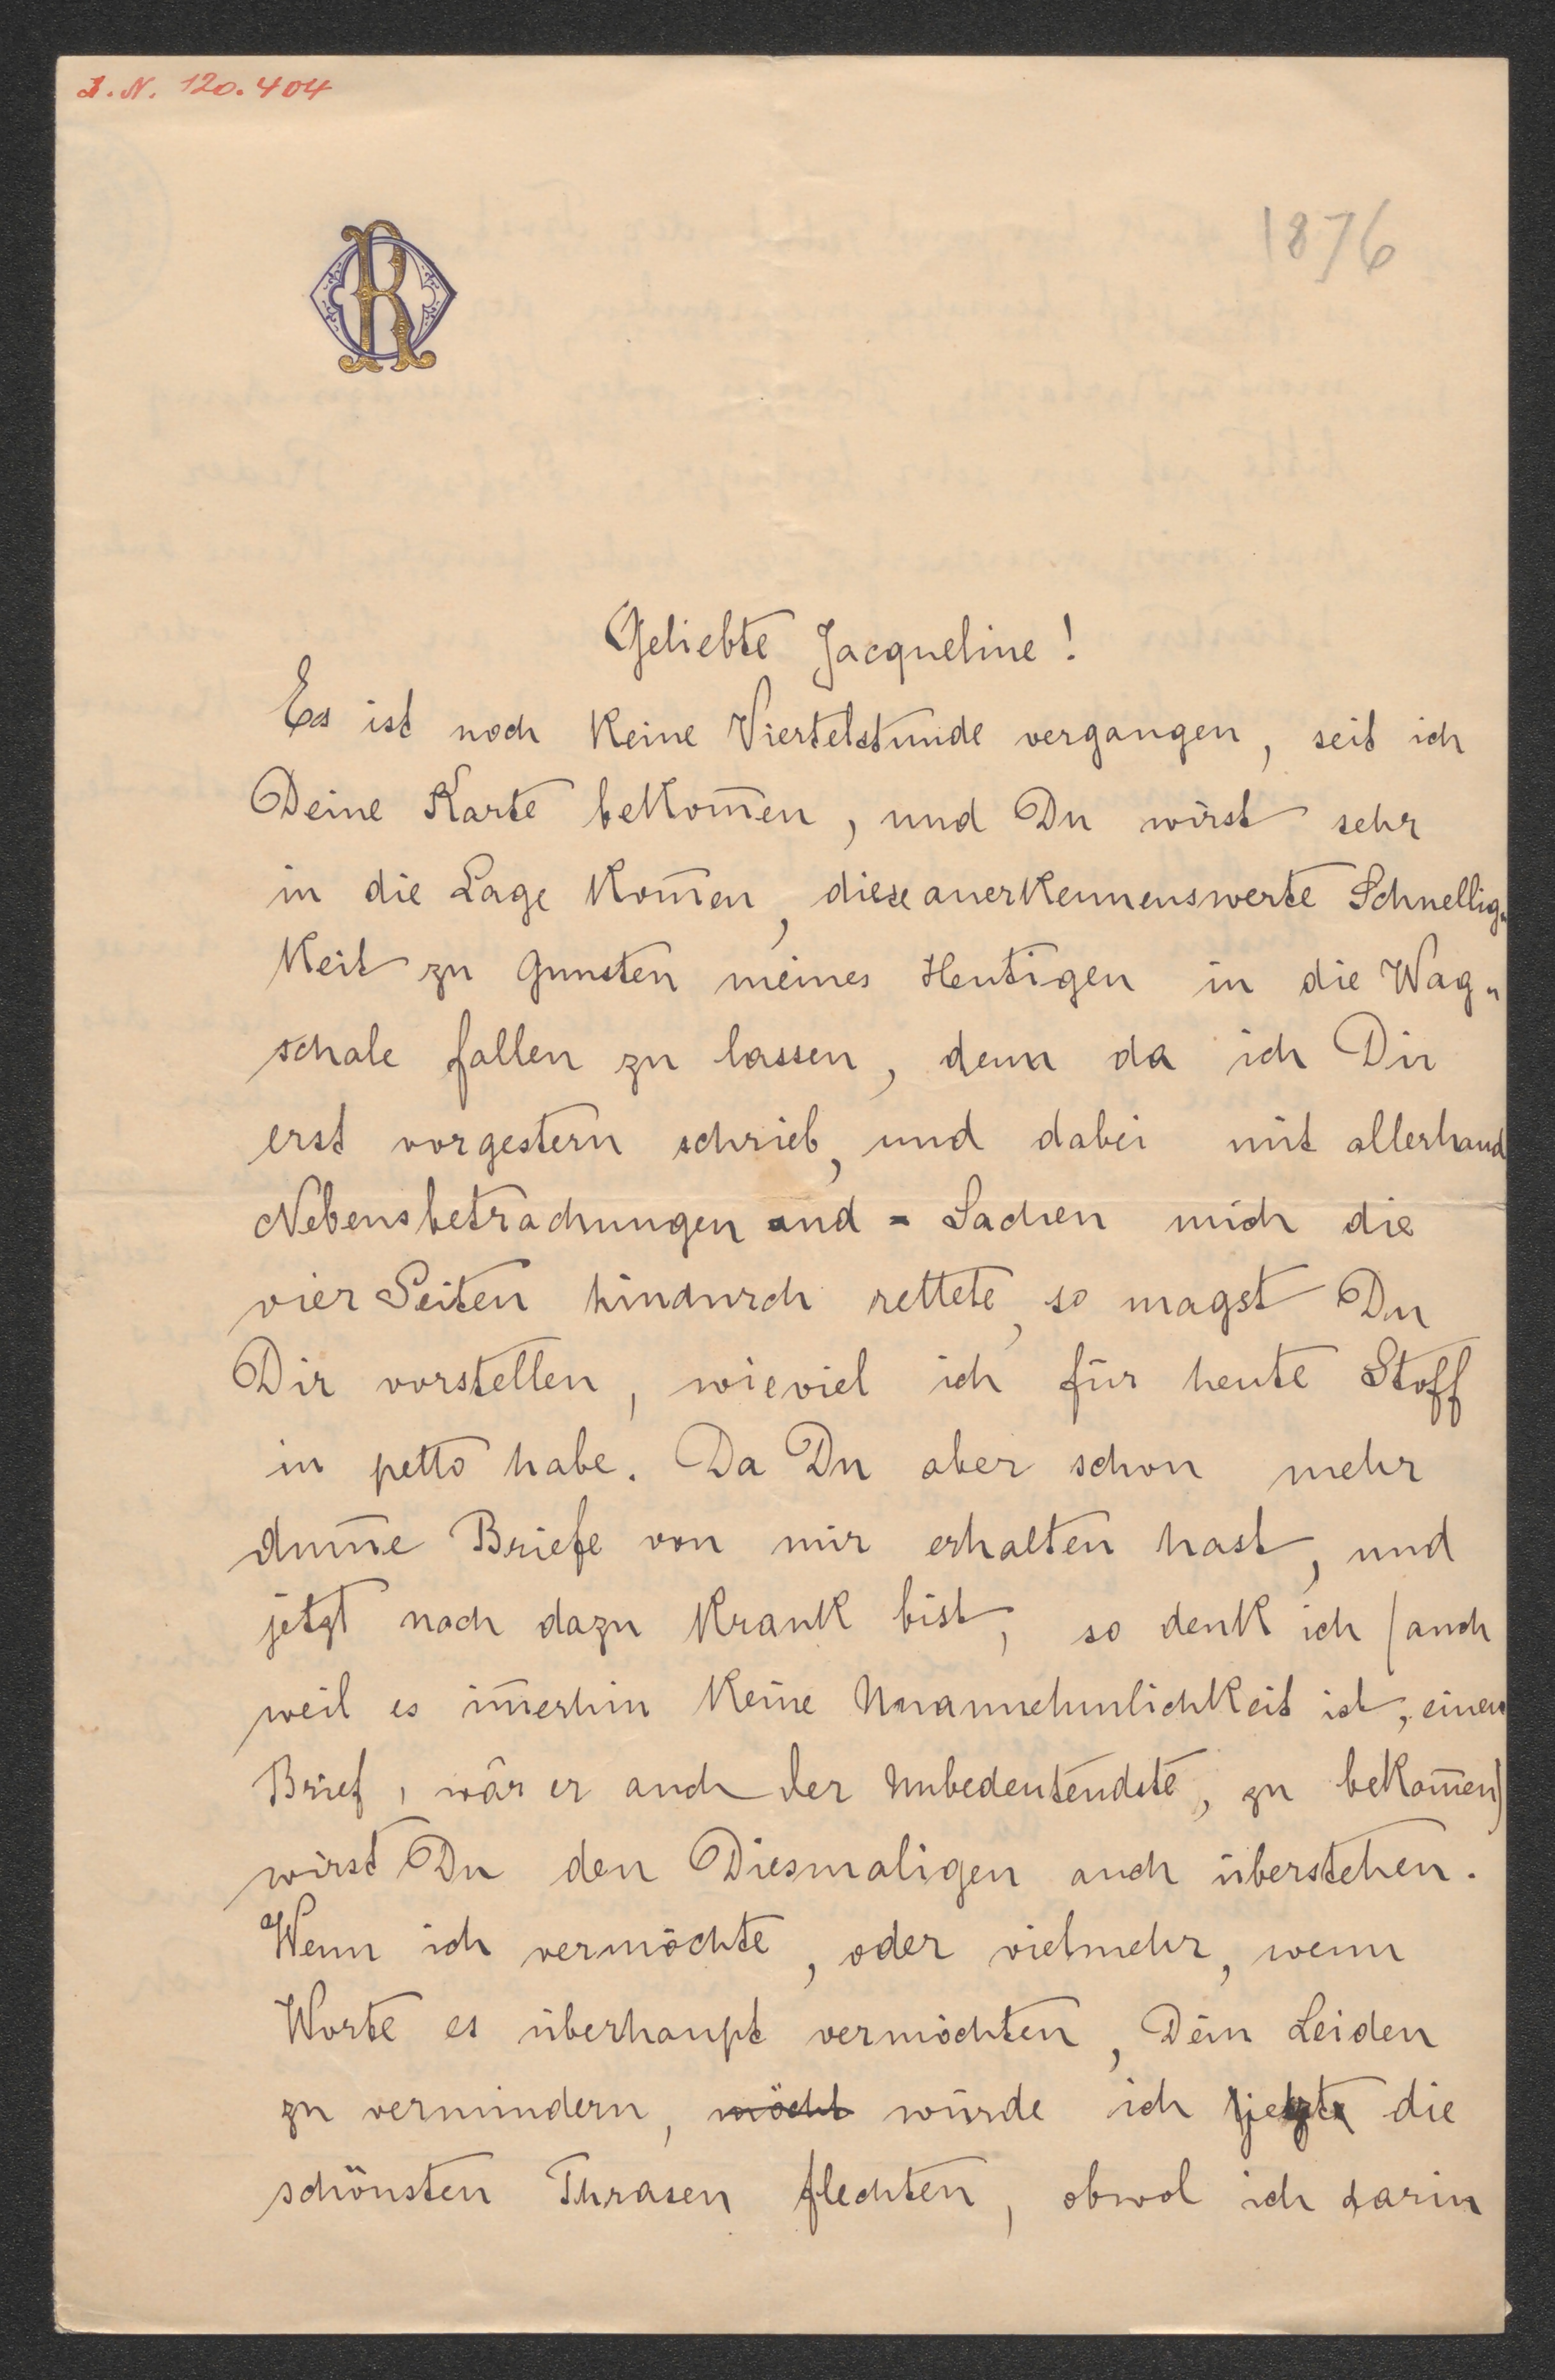 I.N. 120.404
1876
Geliebte Jacqueline!
Es ist noch keine Viertelstunde vergangen, seit ich
Deine Karte bekom̄en, und Du wirst sehr
in die Lage kom̄en, diese anerkennenswerte Schnellig„
keit zu Gunsten meines Heutigen in die Wag„
schale fallen zu lassen, denn da ich Dir
erst vorgestern schrieb, und dabei mit allerhand
Nebensbetrachungen und = Sachen mich die
vier Seiten hindurch rettete, so magst Du
Dir vorstellen, wieviel ich für heute Stoff
in petto habe. Da Du aber schon mehr
dum̄e Briefe von mir erhalten hast, und
jetzt noch dazu krank bist, so denk ich (auch
weil es im̄erhin keine Unannehmlichkeit ist, einen
Brief, wär er auch der Unbedeutendste, zu bekom̄en)
wirst Du den Diesmaligen auch überstehen.
Wenn ich vermöchte, oder vielmehr, wenn
Worte es überhaupt vermöchten, Dein Leiden
zu vermindern, möcht würde ich jetzt die
schönsten Phrasen flechten, obwol ich darin